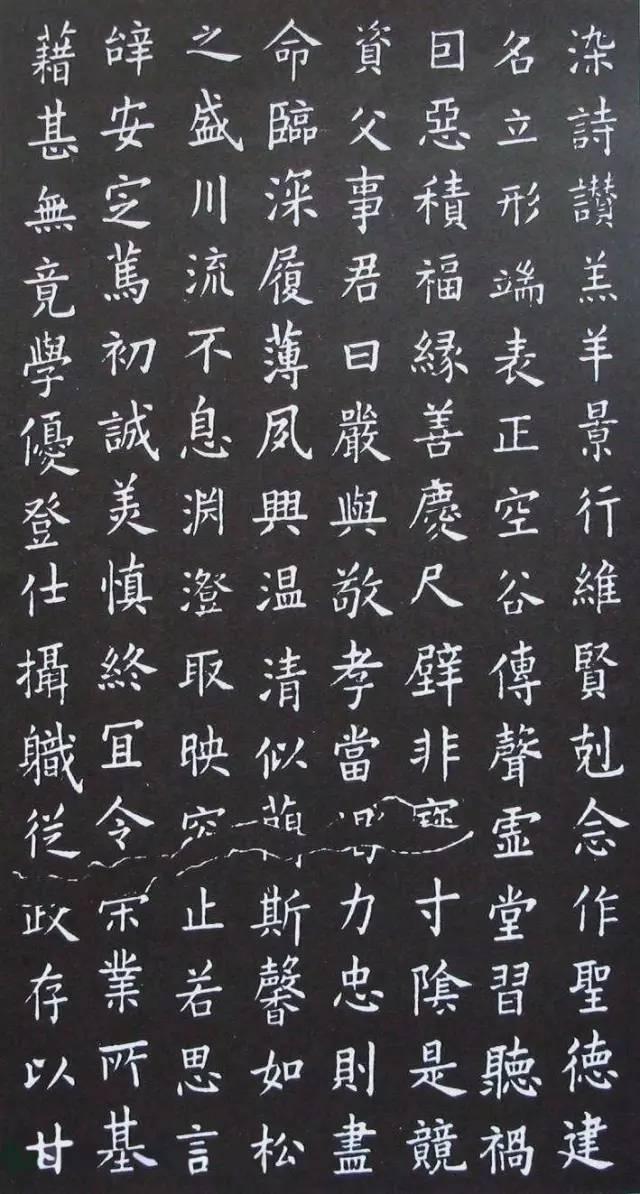 染詩讚羔羊景行維賢剋念作聖德建
名立形端表正空谷傳聲虛堂習聽禍
囙惡積福縁善慶尺璧非寶寸陰是競
資父事君曰嚴與敬孝當竭力忠則盡
命臨深履薄夙興温清似蘭斯馨如松
之盛川流不息渊澄取映容止若思言
辝安定篤初誠美慎終宜令榮業所基
藉甚無竟學優登仕攝職從政存以甘